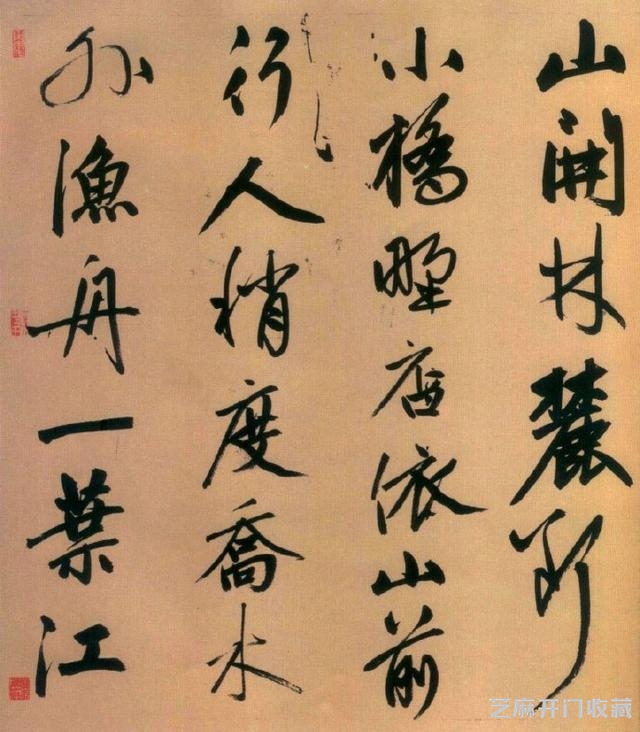 山開林麓斷
小橋野店依山前
行人稍度喬木
外漁舟一葉江
芝麻开门收藏